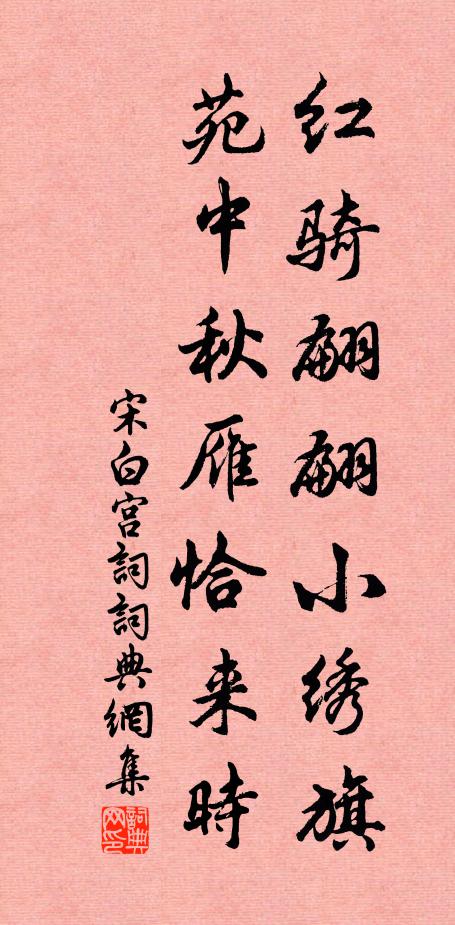 红骑翩翩小绣旗
苑中秋雁恰来時
宋白宫詞詞典網集
詞典
网印